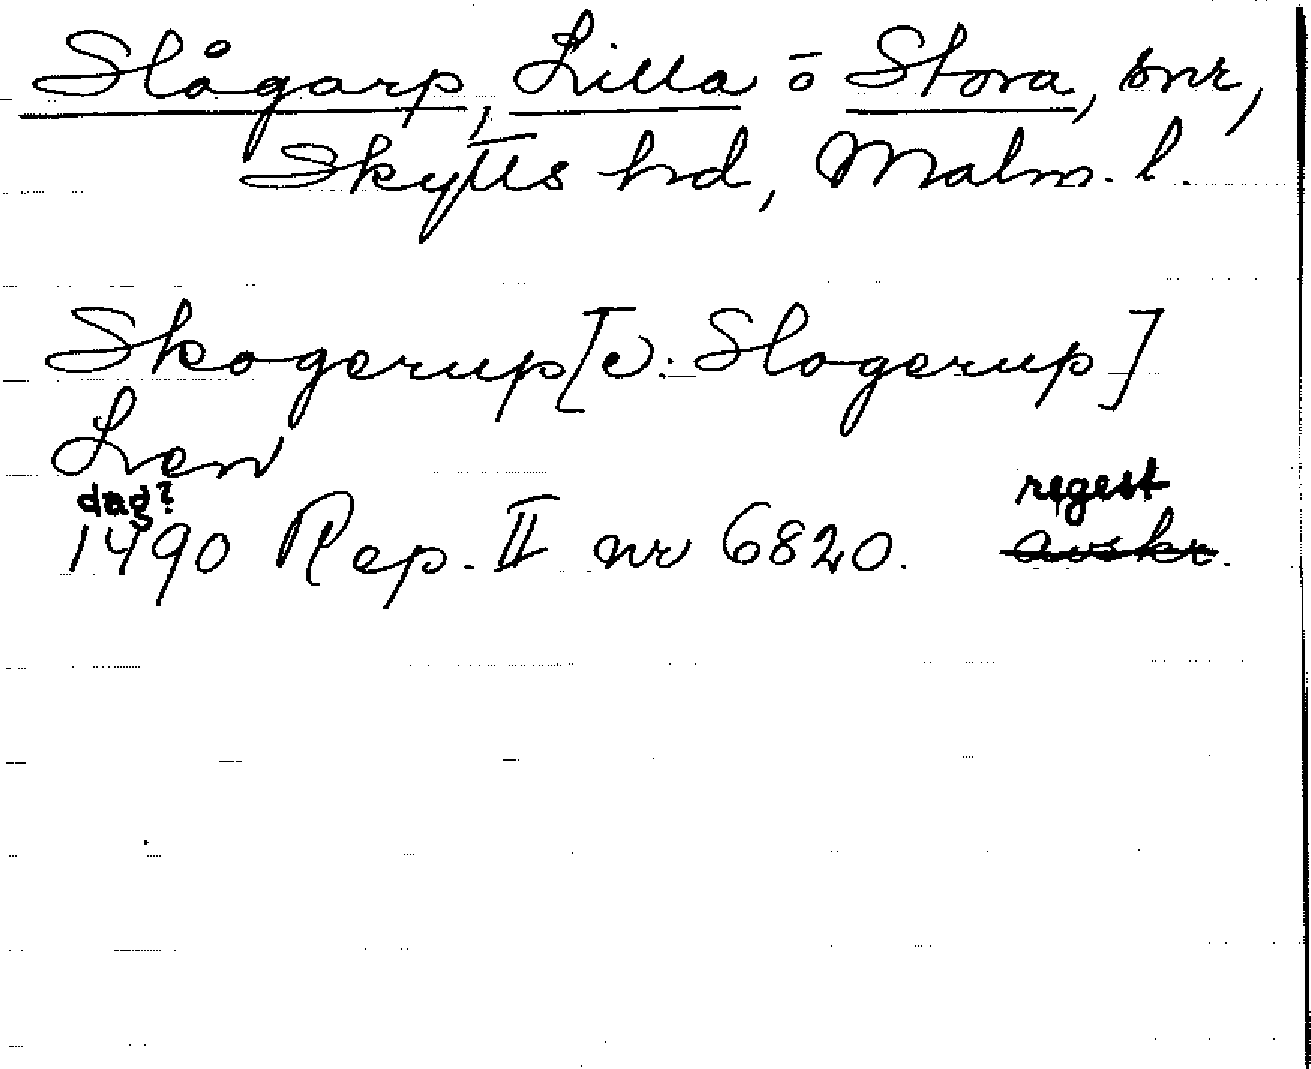 Slågarp, Lilla o Stora, snr,
Skytts hd, Malm. l.
Skogerup [ɔ: Slogerup]
Len
dag? regest
1490 Rep. II nr 6820. avskr.